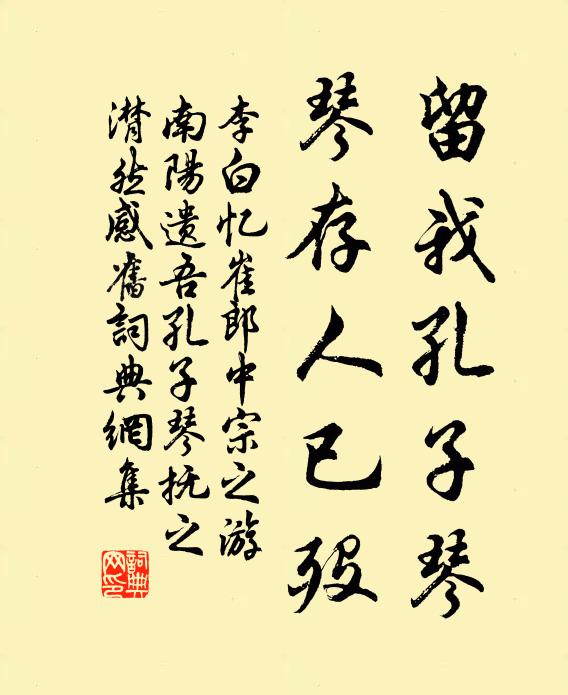 留我孔子琴
琴存人已殁
李白忆崔郎中宗之游
南陽遗吾孔子琴抚之
潸然感舊詞典網集
詞典网印